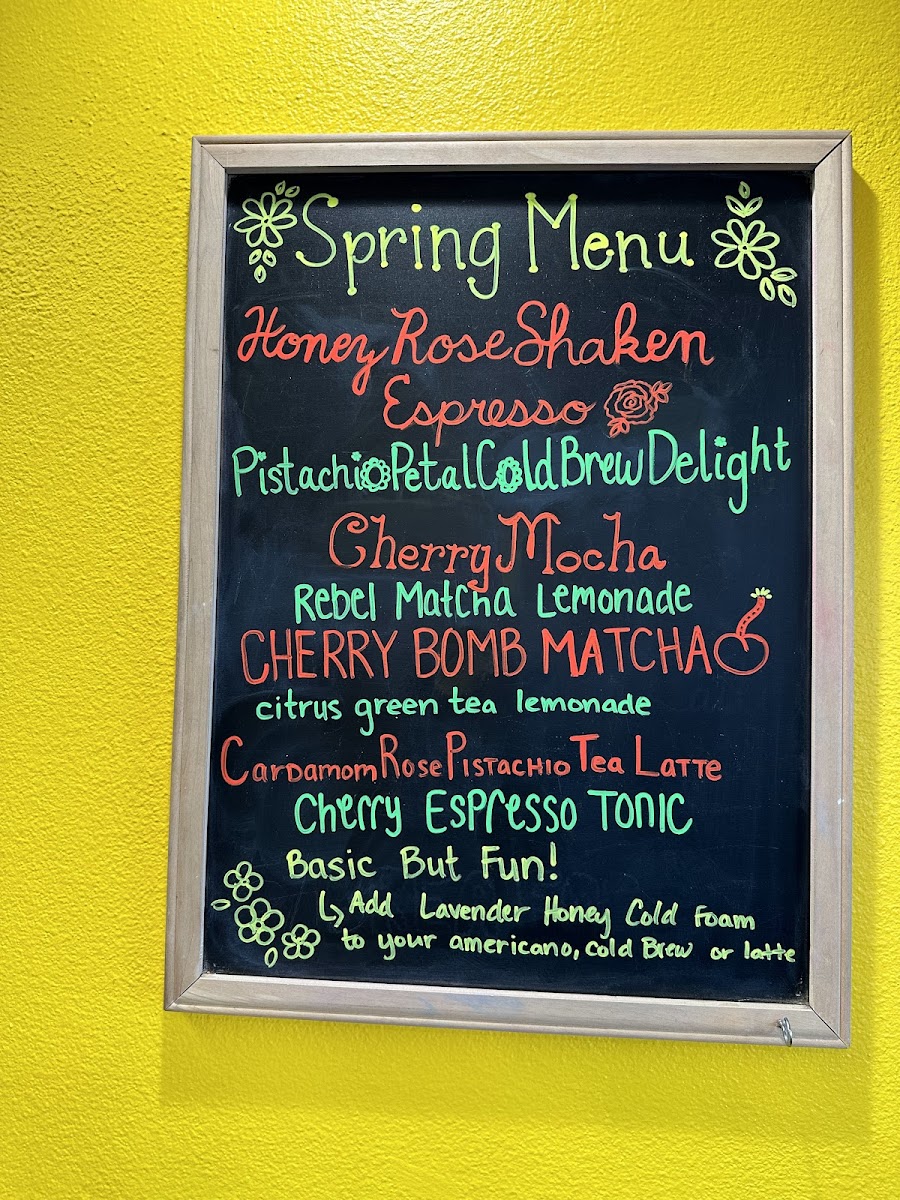 Spring Menu
Honey Rose Shaken
Espresso
Pistachio Petal Cold Brew Delight
Cherry Mocha
Rebel Matcha Lemonade
CHERRY BOMB MATCHA
citrus green tea lemonade
Cardamom Rose Pistachio Tea Latte
Cherry Espresso Tonic
Basic But Fun!
↳ Add Lavender Honey Cold Foam
to your americano, cold Brew or latte